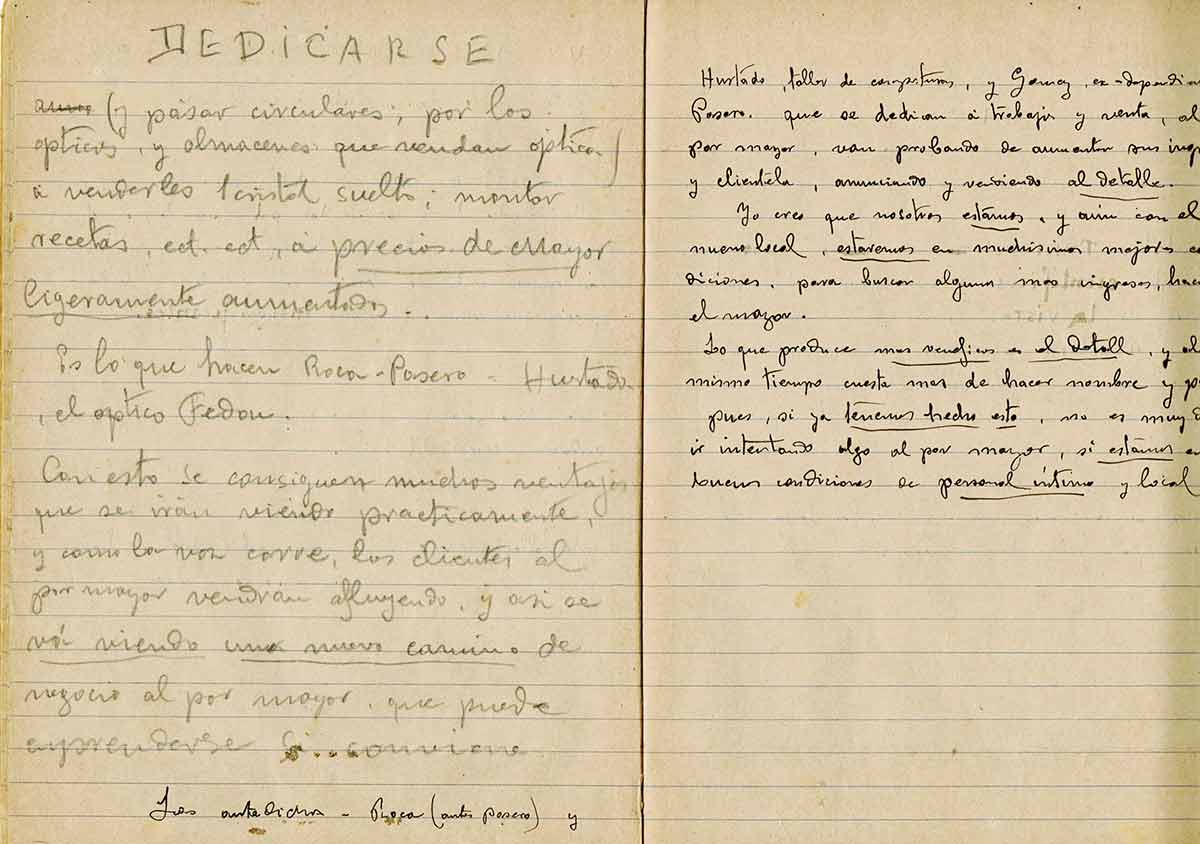 DEDICARSE
(y pasar circulares; por los
opticos, y almacenes que vendan optica)
a venderles 1 cristal suelto; montar
recetas, ect. ect, á precios de Mayor
ligeramente aumentados..
Es lo que hacen Roca-Pasero - Hurtado
, el optico Fedou.
Con esto se consiguen muchas ventajas
que se irán viendo practicamente,
y como la voz corre, los clientes al
por mayor vendrán afluyendo, y asi se
vá viendo un nuevo camino de
negocio al por mayor, que puede
emprenderse si... conviene
Los antedichos - Roca (antes Pasero) y
Hurtado, taller de composturas, y Gomez, ex-dependien
Pasero. que se dedican á trabajo y venta, al
por mayor, van probando de aumentar sus ing
y clientela, anunciando y vendiendo al detalle.
Yo creo que nosotros estámos, y aún con el
nuevo local, estaremos en muchisimas mejores co
diciones, para buscar algunos mas ingresos, hac
el mayor.
Lo que produce mas beneficios es el detall, y al
mismo tiempo cuesta mas de hacer nombre y p
pues, si ya tenemos hecho esto, no es muy
ir intentando algo al por mayor, si estámos en
buenas condiciones de personal íntimo y local